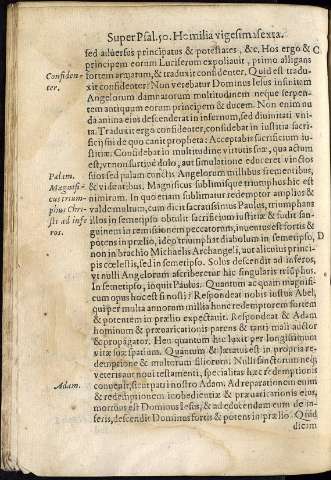 Super Psal. 50. Homilia vigesima sexta.
sed aduersus principatus & potestates, &c. Hos ergo & C
principem eorum Luciferum expoliauit, primo alligans
Confidenter.
fortem armatum, & traduxit confidenter. Quid est tradu
xit confidenter? Non verebatur Dominus Iesus infinitam
Angelorum damnatorum multitudinem neque serpen
tem antiquum eorum principem & ducem. Non enim nu
da anima eius descenderat in infernum, sed diuinitati vni-
ta. Traduxit ergo confidenter, confidebat in iustitia sacri-
ficij sui de quo canit propheta: Acceptabis sacrificium iu-
stitiæ. Confidebat in multitudine virtutis suæ, qua actum
est, vt non furtiuè dolo, aut simulatione educeret vinctos
Palam.
suos sed palam cunctis Angelorum millibus frementibus,
Magnificus triumphus Christi ad inferos.
& videntibus. Magnificus sublimisque triumphus hic est
nimirum. In quo etiam sublimatur redemptor amplius &
valde multum, cum dicit sacratissimus Paulus, triumphans
illos in semetipso obtulit sacrificium iustitiæ & fudit san-
guinem in remissionem peccatorum, inuentus est fortis &
potens in prælio, ideo triumphat diabolum in semetipso, D
non in brachio Michaelis Archangeli, aut alicuius princi-
pis cœlestis, sed in semetipso. Solus descendit ad inferos,
vt nulli Angelorum ascriberetur hic singularis triũphus.
In semetipso, inquit Paulus. Quantum ac quam magnifi-
cum opus hoc est si nosti? Respondeat nobis iustus Abel,
qui per multa annorum millia hunc redemptorem fortem
& potentem in prælio expectauit. Respondeat & Adam
hominum & præuaricationis parens & tanti mali auctor
& propagator. Heu quantum hic luxit per longissimum
vitæ suæ spatium. Quantum & lætatus est in propria re-
demptione & multorum filiorum? Nulli sanctorum neque
veteris aut noui testamenti, specialitas hæc redemptionis
Adam.
conuenit, sicut patri nostro Adam. Ad reparationem enim
& redemptionem inobedientiæ & præuaricationis eius,
mortuus est Dominus Iesus, & ad educendum eum de in-
feris, descendit Dominus fortis & potens in prælio. Quid
dicam